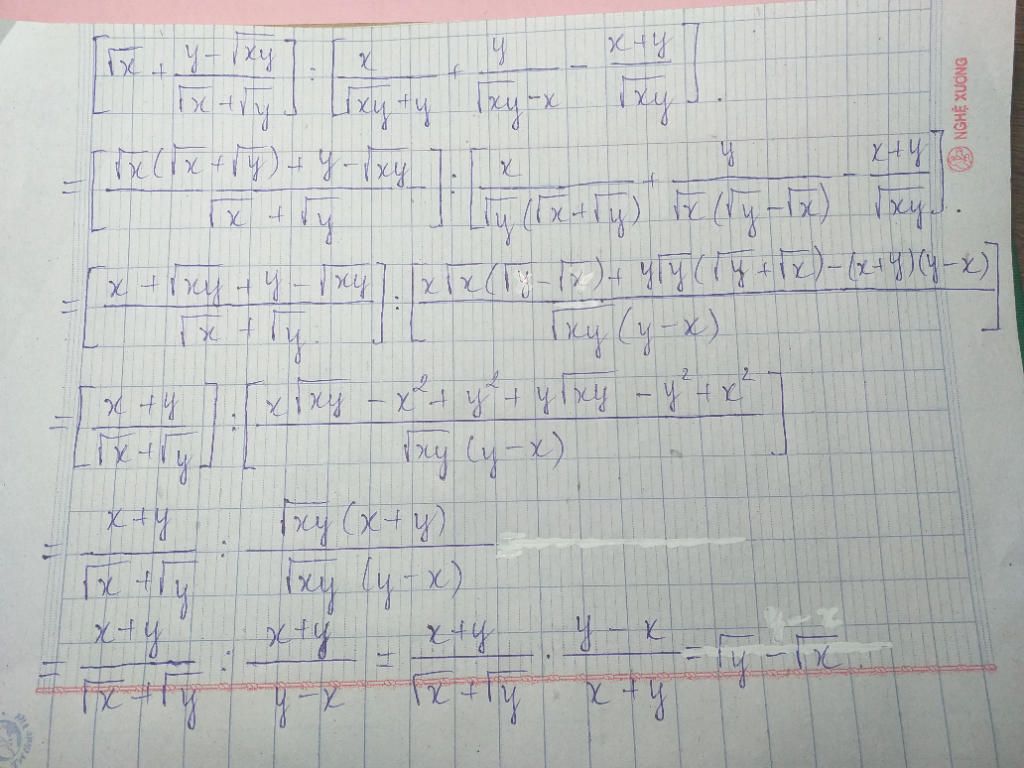 [√x + (y - √xy)/(√x + √y)] : [x/(√xy + y) + y/(√xy - x) - (x+y)/√xy].
= [(√x(√x + √y) + y - √xy)/(√x + √y)] : [x/(√y(√x + √y)) + y/(√x(√y - √x)) - (x+y)/√xy].
= [(x + √xy + y - √xy)/(√x + √y)] : [(x√x(√y - √x) + y√y(√y + √x) - (x+y)(y-x))/(√xy (y-x))]
= [(x+y)/(√x + √y)] : [(x√xy - x² + y² + y√xy - y² + x²)/(√xy (y-x))]
= (x+y)/(√x + √y) : (√xy (x+y))/(√xy (y-x))
= (x+y)/(√x + √y) : (x+y)/(y-x) = (x+y)/(√x + √y) . (y-x)/(x+y) = √y - √x.
NGHỆ XƯƠNG